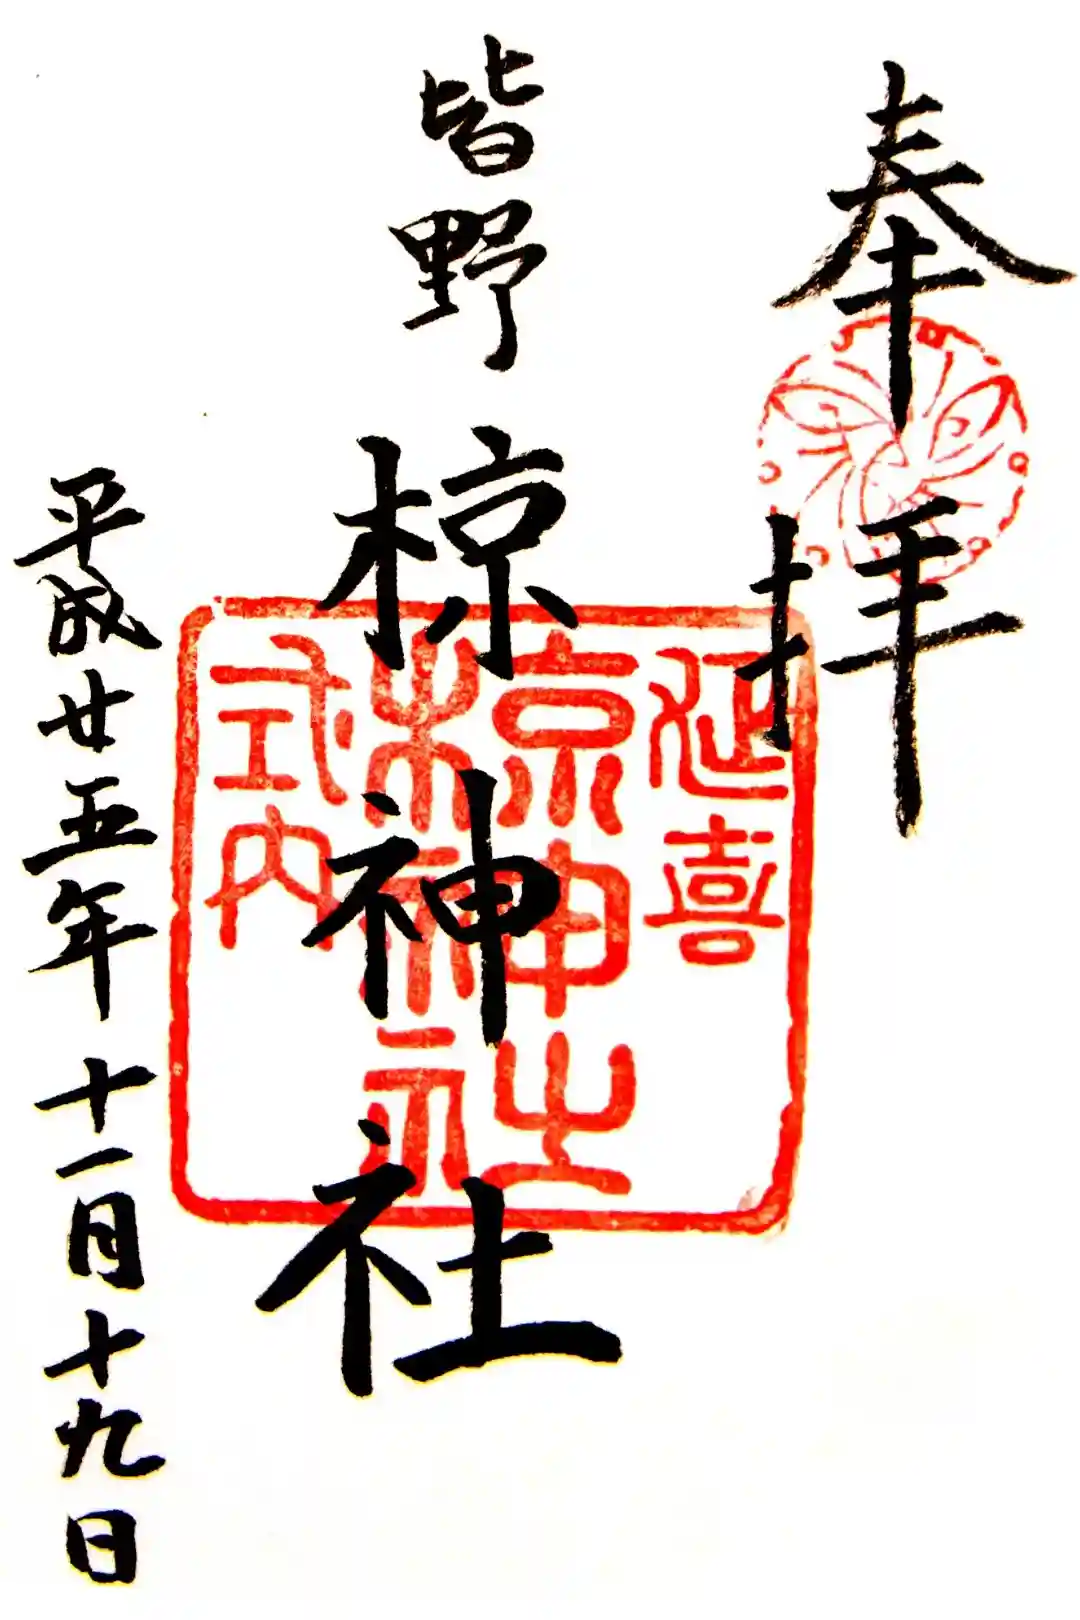 奉拝
延喜
皆野
椋神社
椋神社
式内
平成廿五年十一月十九日